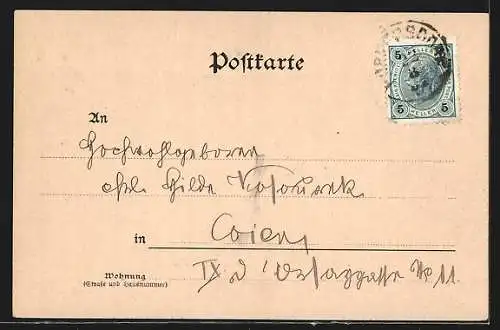 Postkarte
5 5
5 HELLER 5
An
Hochwohlgeboren
Hilde
in Wien
Wohnung
(Straße und Hausnummer)
IX. d'Orsaygasse No 11.